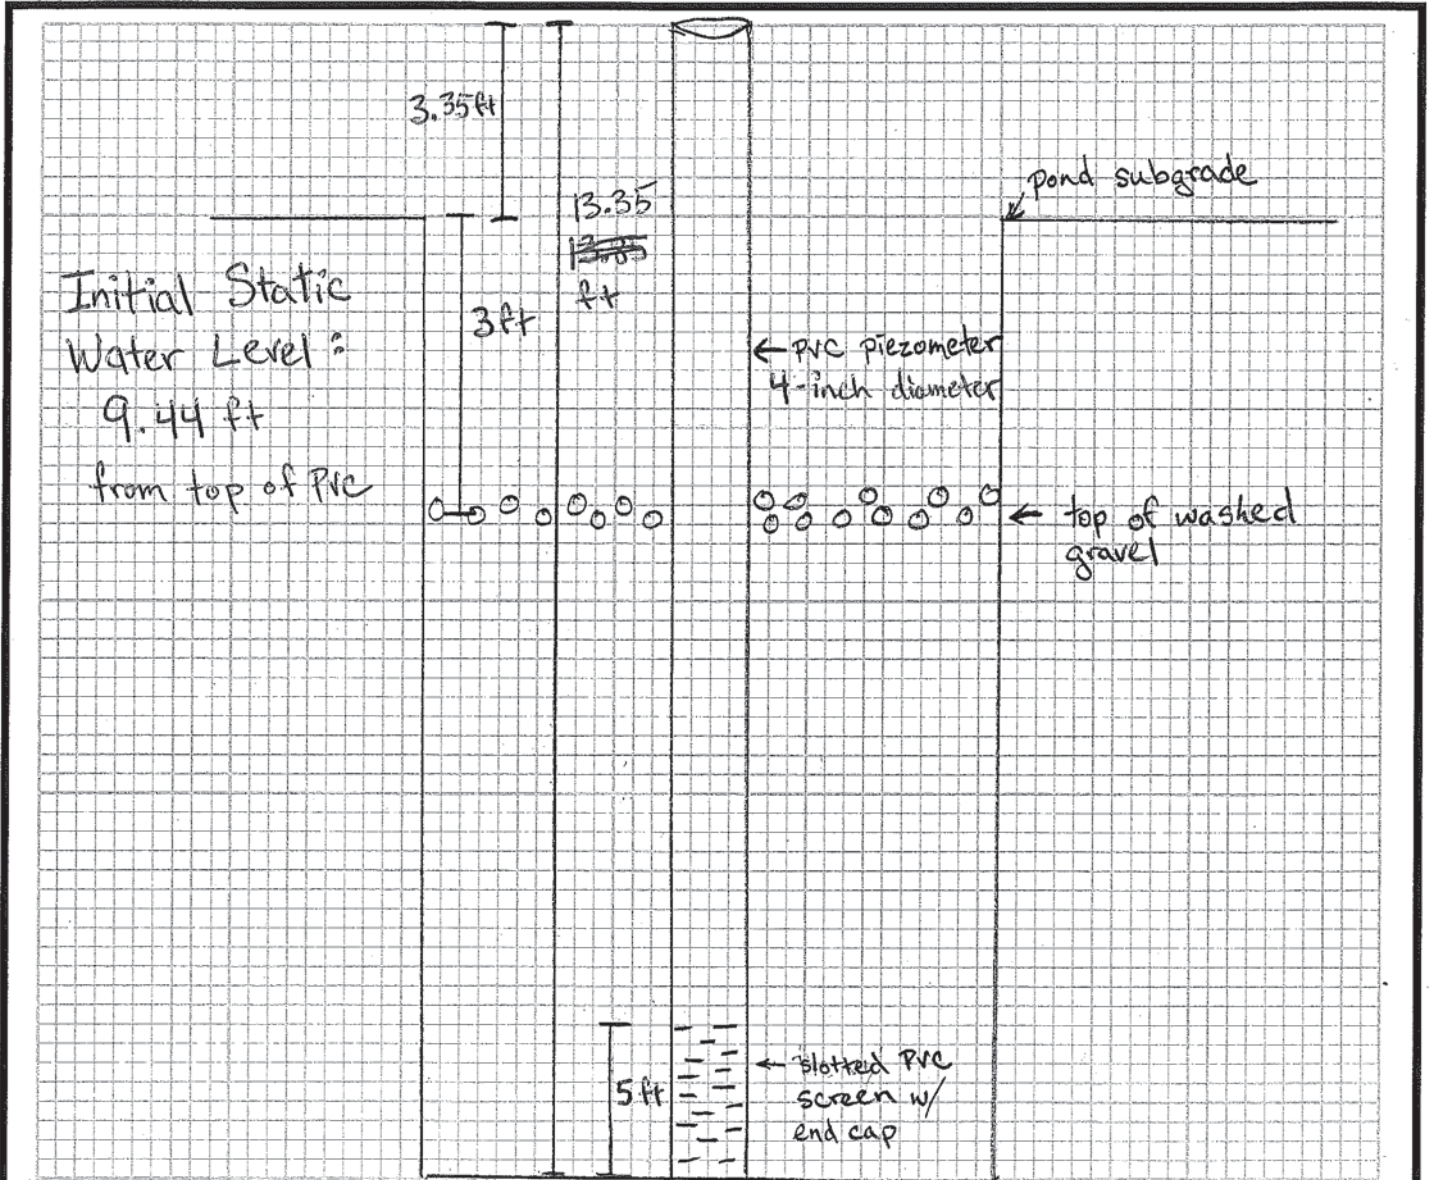 3.35ft
pond subgrade
13.35
ft
Initial Static
Water Level:
9.44 ft
from top of PVC
3ft
←PVC piezometer
4-inch diameter
← top of washed
gravel
5ft
← slotted PVC
screen w/
end cap